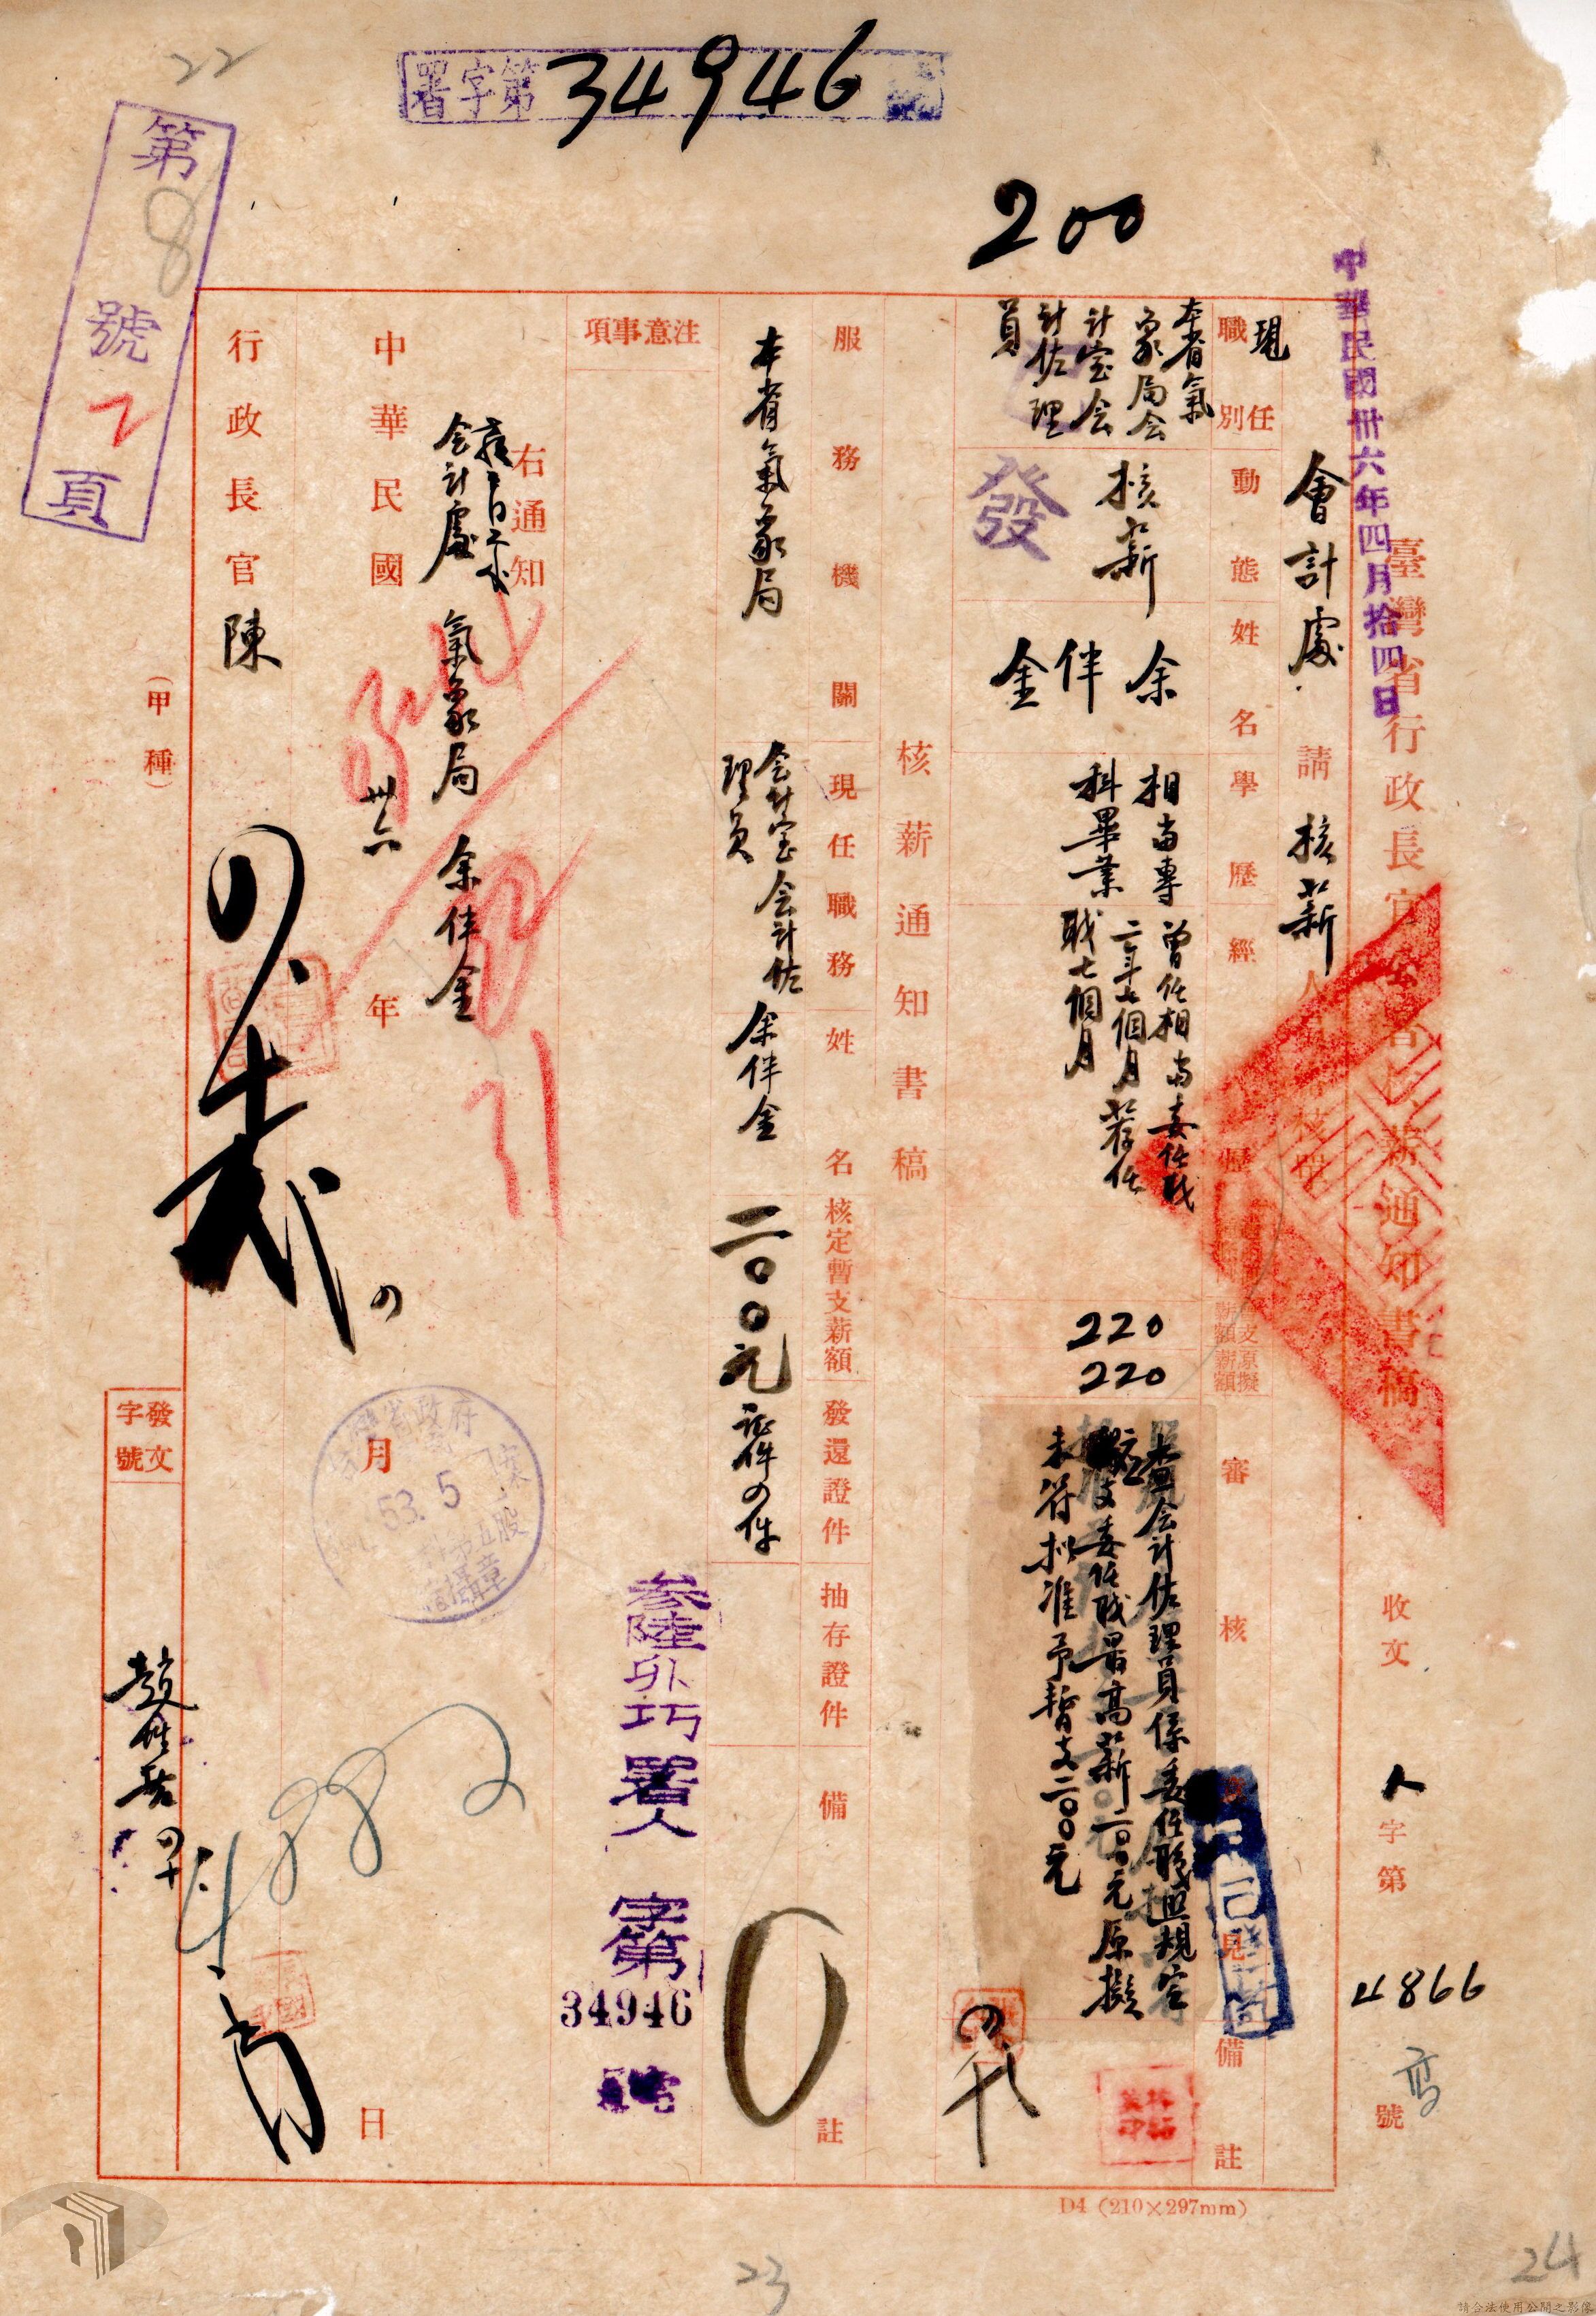 22
署字第34946號
200
第8號2頁
中華民國卅六年四月拾四日
臺灣省行政長官公署核薪通知書稿
收文
人字第4866號
會計處請核薪人
現任
職別
動態
姓名
學歷
經歷
原支薪額
原擬薪額
審核意見
備註
本省氣
象局会
計室会
計佐理
員
核薪
發
余
伴
金
相當專
科畢業
曾任相當委任职
二年七個月荐任
职七個月
220
220
查会计佐理員係委任职照規定
支委任职最高薪二〇〇元原擬
未符拟准予暫支二〇〇元
核薪通知書稿
服務機關
現任職務
姓名
核定暫支薪額
發還證件
抽存證件
備註
本省氣象局
会计室会计佐
理員
余伴金
二〇〇元
証件四件
注意事項
參陸卯巧署人字第34946號
右通知
会計處
氣象局
余伴金
中華民國卅六年月日
行政長官陳
(甲種)
發文
字號
53. 5
4882
D4 (210×297mm)
23
24
請合法使用公開之影像